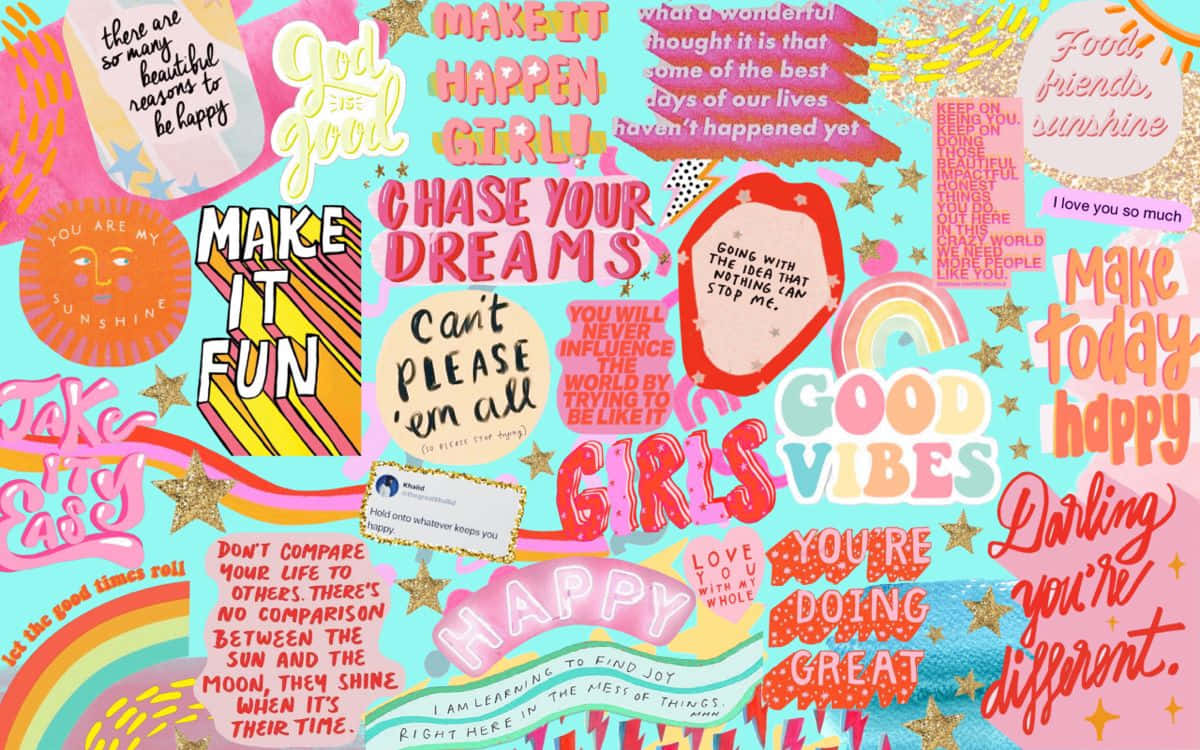 there are
so many
beautiful
reasons to
be happy
God
IS
good
MAKE IT
HAPPEN
GIRL!
what a wonderful
thought it is that
some of the best
days of our lives
haven't happened yet
Food,
friends,
sunshine
KEEP ON
BEING YOU.
KEEP ON
DOING
THOSE
BEAUTIFUL
IMPACTFUL
HONEST
THINGS
YOU DO.
OUT HERE
IN THIS
CRAZY WORLD
WE NEED
MORE PEOPLE
LIKE YOU.
I love you so much
YOU ARE MY
SUNSHINE
MAKE
IT
FUN
CHASE YOUR
DREAMS
GOING WITH
THE IDEA THAT
NOTHING CAN
STOP ME.
Can't
PLEASE
'em all
(SO PLEASE STOP trying)
YOU WILL
NEVER
INFLUENCE
THE
WORLD BY
TRYING TO
BE LIKE IT
Make
today
happy
TAKE
IT
EASY
GOOD
VIBES
GIRLS
Khalid
@thegreatkhalid
Hold onto whatever keeps you
happy.
DON'T COMPARE
YOUR LIFE TO
OTHERS. THERE'S
NO COMPARISON
BETWEEN THE
SUN AND THE
MOON, THEY SHINE
WHEN IT'S
THEIR TIME.
let the good times roll
HAPPY
LOVE
YOU
WITH MY
WHOLE
YOU'RE
DOING
GREAT
Darling
you're
different.
I AM LEARNING TO FIND JOY
RIGHT HERE IN THE MESS OF THINGS.
MHN